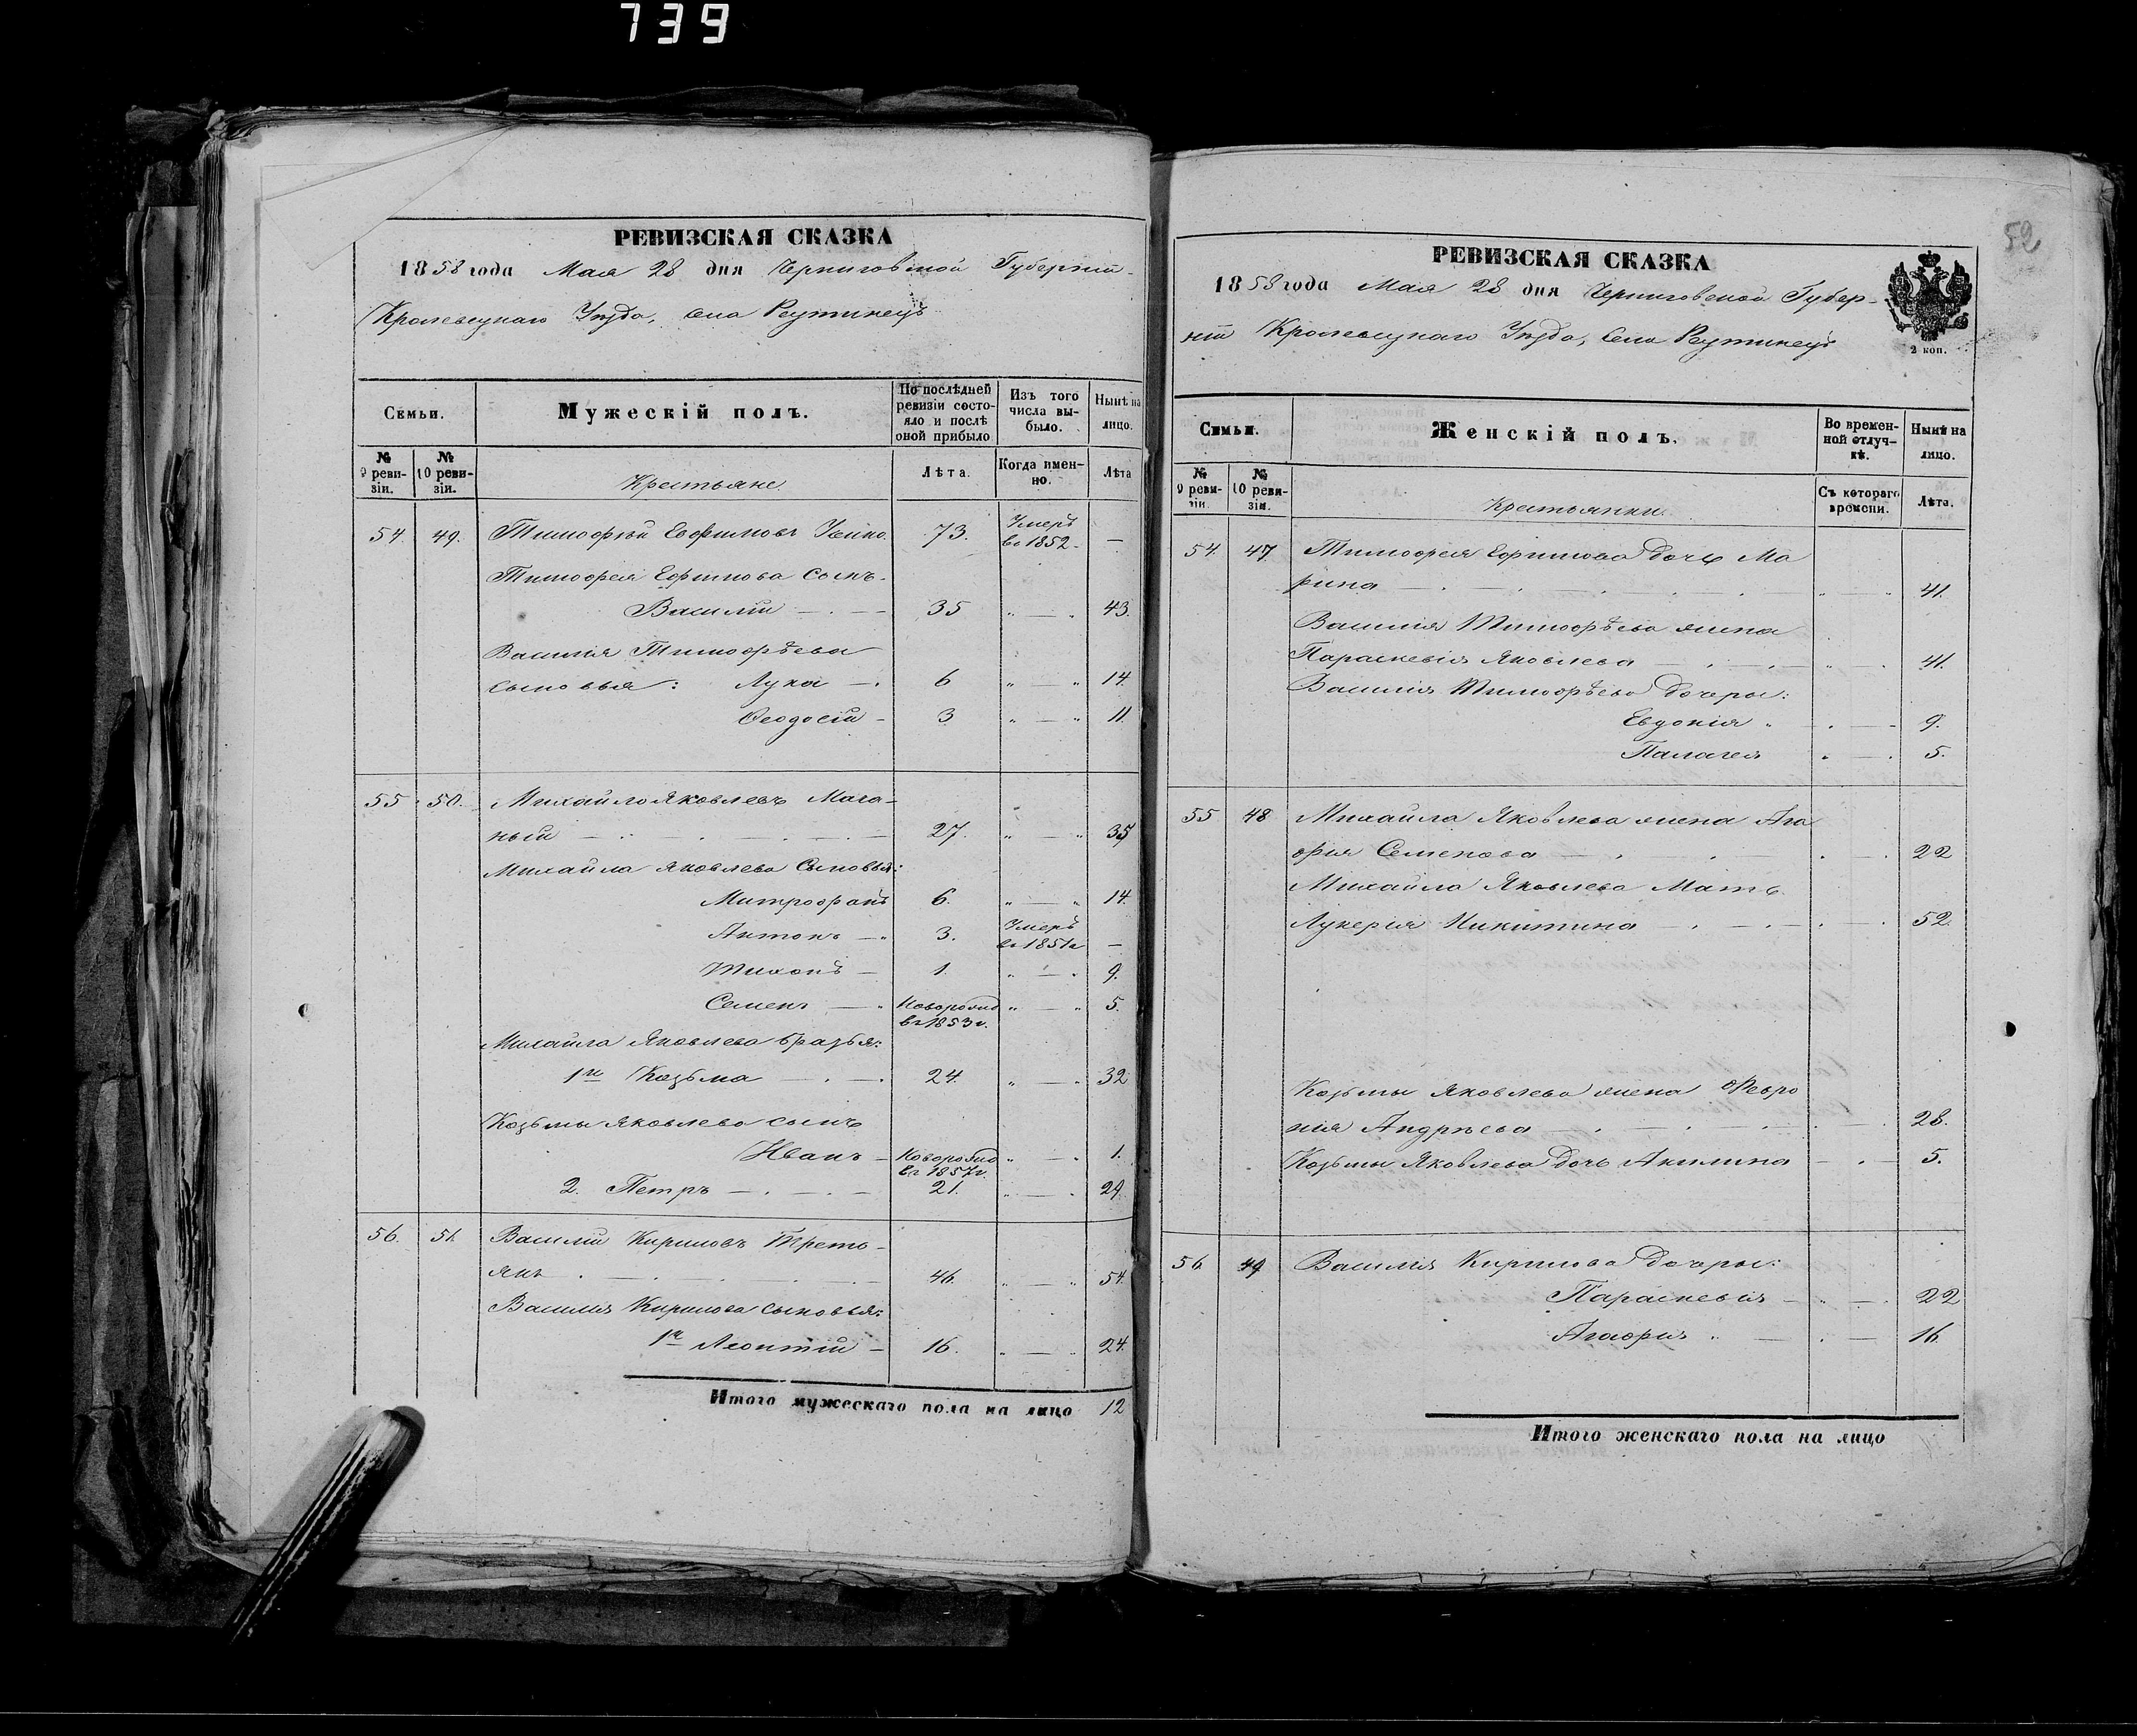 739
РЕВИЗСКАЯ СКАЗКА
1858 года Мая 28 дня Черниговской Губерніи
Кролевецкаго Уезда, села Реутинецъ
Семьи.
Мужескій полъ.
По послѣдней ревизіи состояло и послѣ оной прибыло
Изъ того числа выбыло.
Нынѣ на лицо.
№ 9 ревизіи.
№ 10 ревизіи.
Крестьяне.
Лѣта.
Когда именно.
Лѣта
54. 49. Тимофѣй Евфимовъ 73. Умеръ въ 1852. —
Тимофея Ефимова сынъ
Василій 35 " — " 43.
Василія Тимофѣева
сыновья: Лука 6 " — " 14.
Феодосій 3 " — " 11.
55. 50. Михайло Яковлевъ Мага-
ный 27. " — " 35
Михайла Яковлева сыновья:
Митрофанъ 6. " — " 14.
Антонъ 3. Умеръ въ 1851 г —
Тихонъ 1. " — " 9.
Семенъ Новорожд въ 1853 г. " — " 5.
Михайла Яковлева братья:
1й Козьма 24. " — " 32
Козьмы Яковлева сынъ
Иванъ Новорожд въ 1857 г. " — " 1.
2. Петръ 21. " — " 29.
56. 51. Василій Кириловъ Треть-
якъ 46. " — " 54.
Василія Кирилова сыновья:
1й Леонтій 16. " — " 24.
Итого мужескаго пола на лицо 12
52
РЕВИЗСКАЯ СКАЗКА
1858 года Мая 28 дня Черниговской Губер-
ніи Кролевецкаго Уезда, села Реутинецъ
2 коп.
Семьи.
Женскій полъ.
Во временной отлучкѣ.
Нынѣ на лицо.
№ 9 ревизіи.
№ 10 ревизіи.
Крестьянки.
Съ котораго времени.
Лѣта.
54. 47. Тимофея Ефимова дочь Ма
рина " — " 41.
Василія Тимофѣева жена
Параскевія Яковлева " — " 41.
Василія Тимофѣева дочери:
Евдокія " — " 9.
Палагея " — " 5.
55 48 Михайла Яковлева жена Ага
фія Семенова 22
Михайла Яковлева мать
Лукерія Никитина 52.
Козьмы Яковлева жена Февро
нія Андрѣева 28.
Козьмы Яковлева дочь Акилина 5.
56. 49 Василія Кирилова дочери:
Параскевія 22
Агафія 16.
Итого женскаго пола на лицо